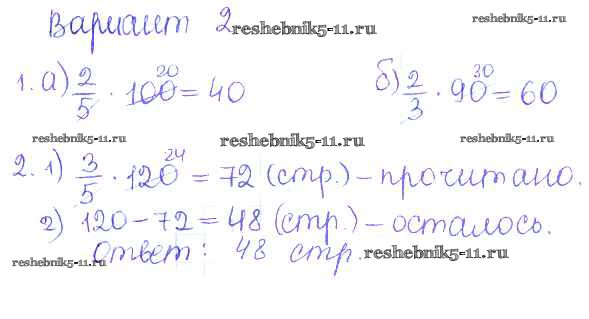 Вариант 2 reshebnik5-11.ru reshebnik5-11.ru
1. а) 2/5 · 100 20 = 40 б) 2/3 · 90 30 = 60
reshebnik5-11.ru reshebnik5-11.ru reshebnik5-11.ru
2. 1) 3/5 · 120 24 = 72 (стр.) – прочитано.
2) 120 – 72 = 48 (стр.) – осталось.
Ответ: 48 стр. reshebnik5-11.ru
reshebnik5-11.ru